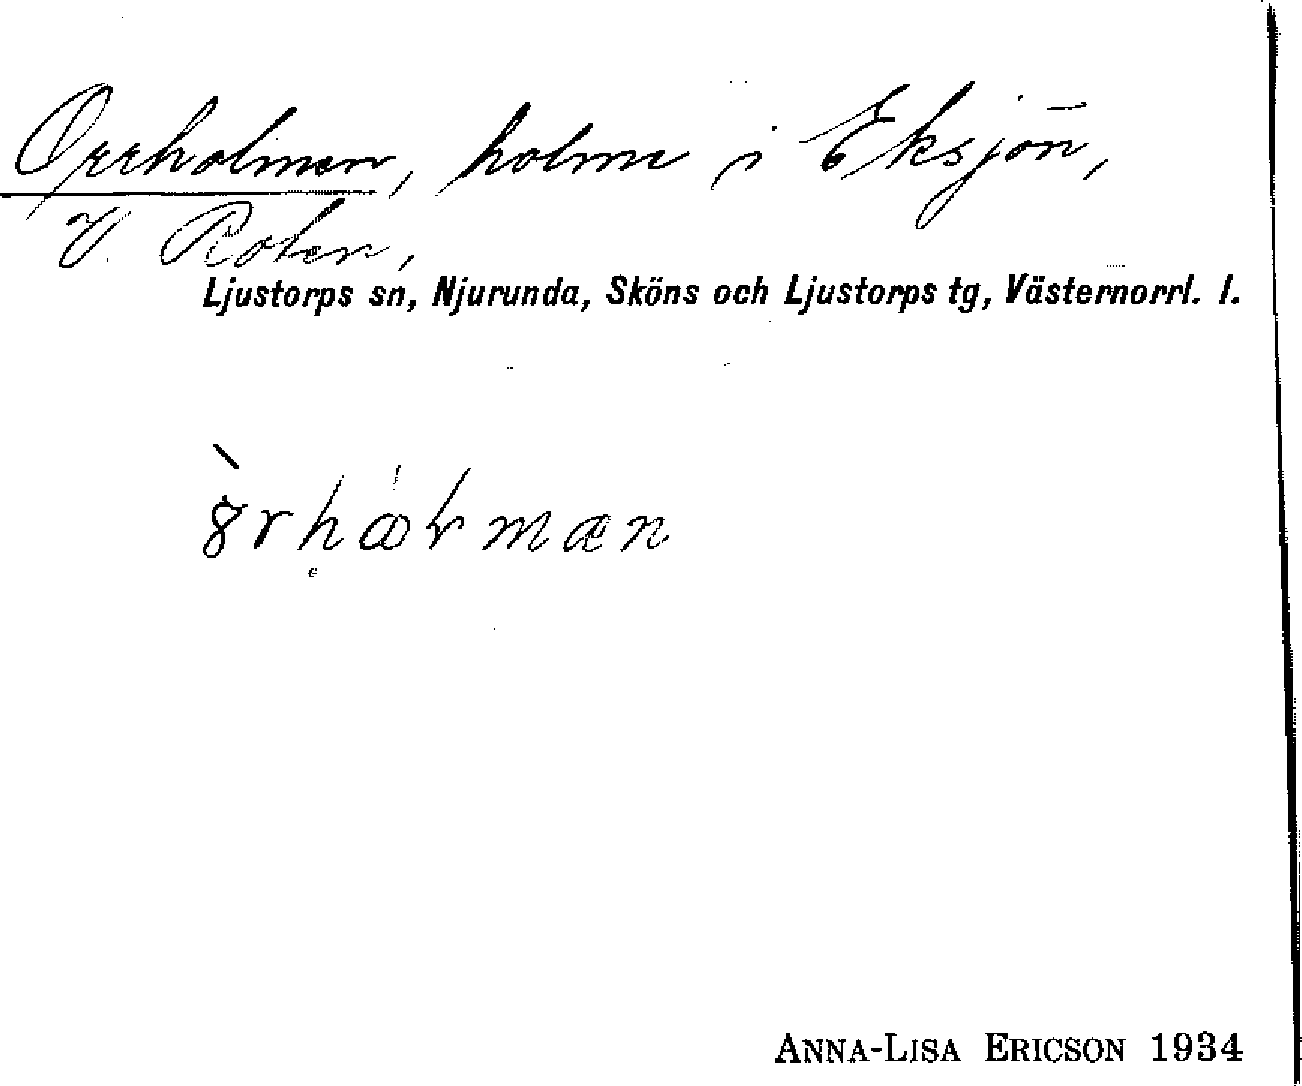 Orrholmen, holme i Eksjön,
V. Roten,
Ljustorps sn, Njurunda, Sköns och Ljustorps tg, Västernorrl. l.
ANNA-LISA ERICSON 1934